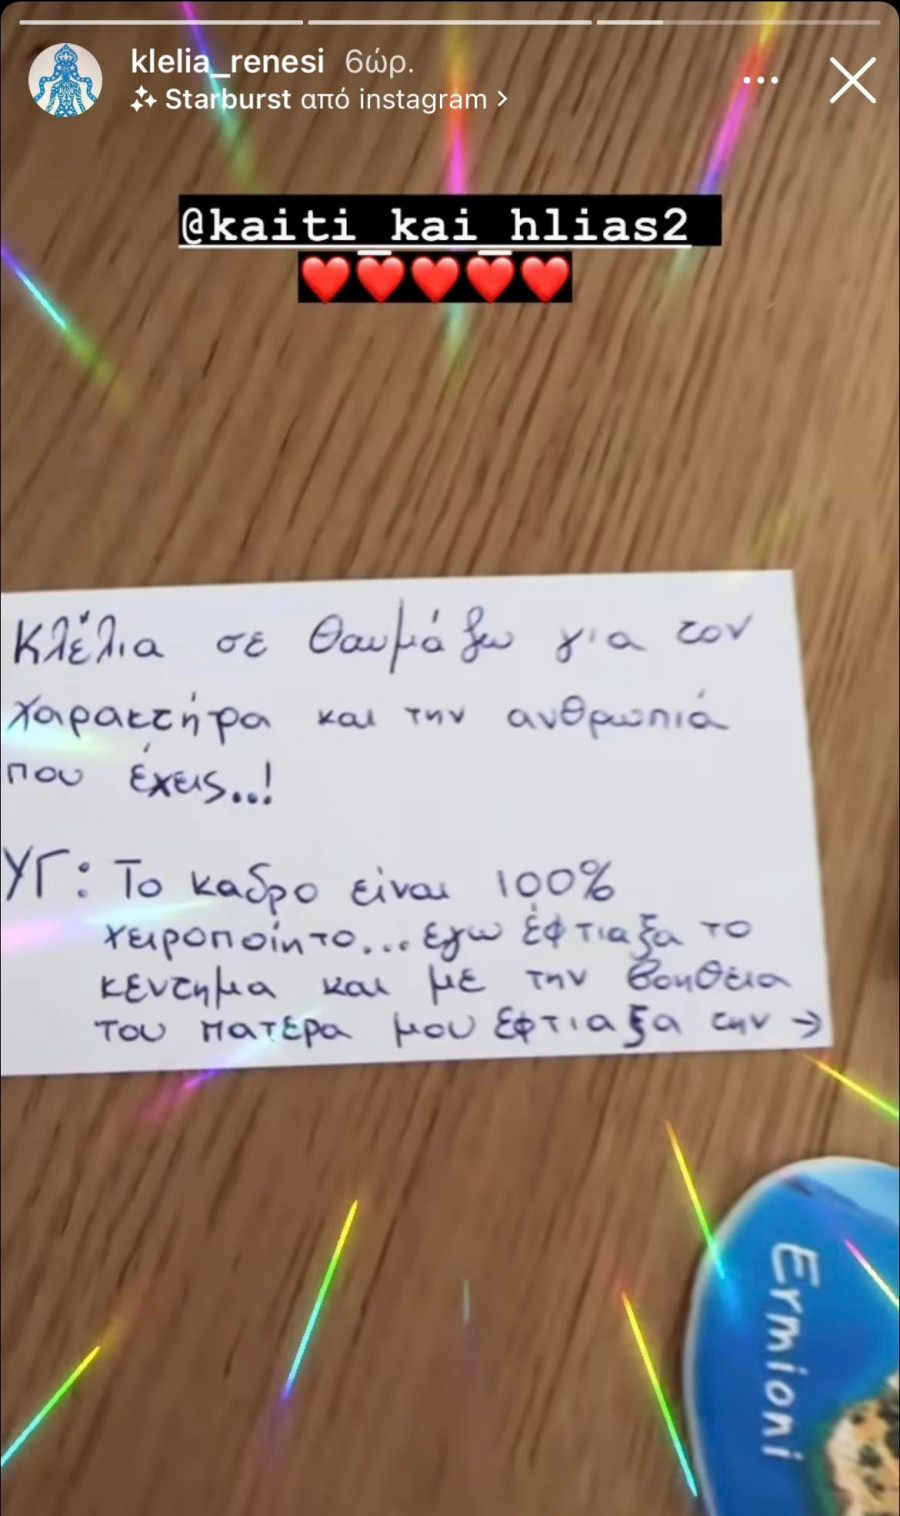 klelia_renesi 6ώρ.
Starburst από instagram >
@kaiti_kai_hlias2
❤️❤️❤️❤️❤️
Κλέλια σε θαυμάζω για τον
χαρακτήρα και την ανθρωπιά
που έχεις..!
ΥΓ: Το καδρο είναι 100%
χειροποίητο... εγω έφτιαξα το
κεντημα και με την βοηθεια
του πατερα μου έφτιαξα την →
Ermioni